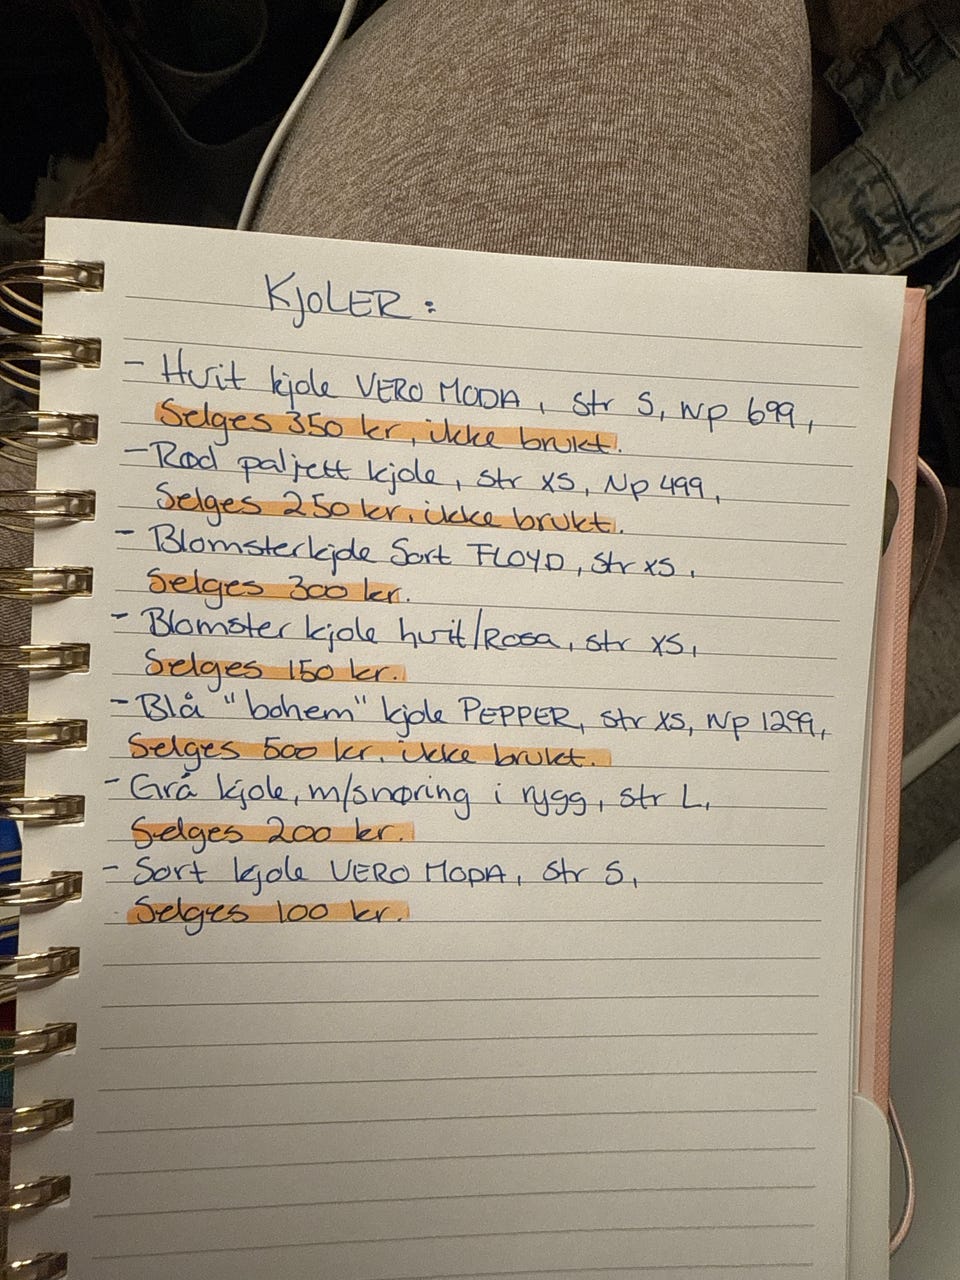 KJOLER :
- Hvit kjole VERO MODA, str S, Np 699,
Selges 350 kr, ikke brukt.
- Rød paljett kjole, str XS, Np 499,
Selges 250 kr, ikke brukt.
- Blomsterkjole Sort FLOYD, str XS,
Selges 300 kr.
- Blomster kjole hvit/Rosa, str XS,
Selges 150 kr.
- Blå "bohem" kjole PEPPER, str XS, Np 1299,
Selges 500 kr, ikke brukt.
- Grå kjole, m/snøring i rygg, str L,
Selges 200 kr.
- Sort kjole VERO MODA, str S,
Selges 100 kr.